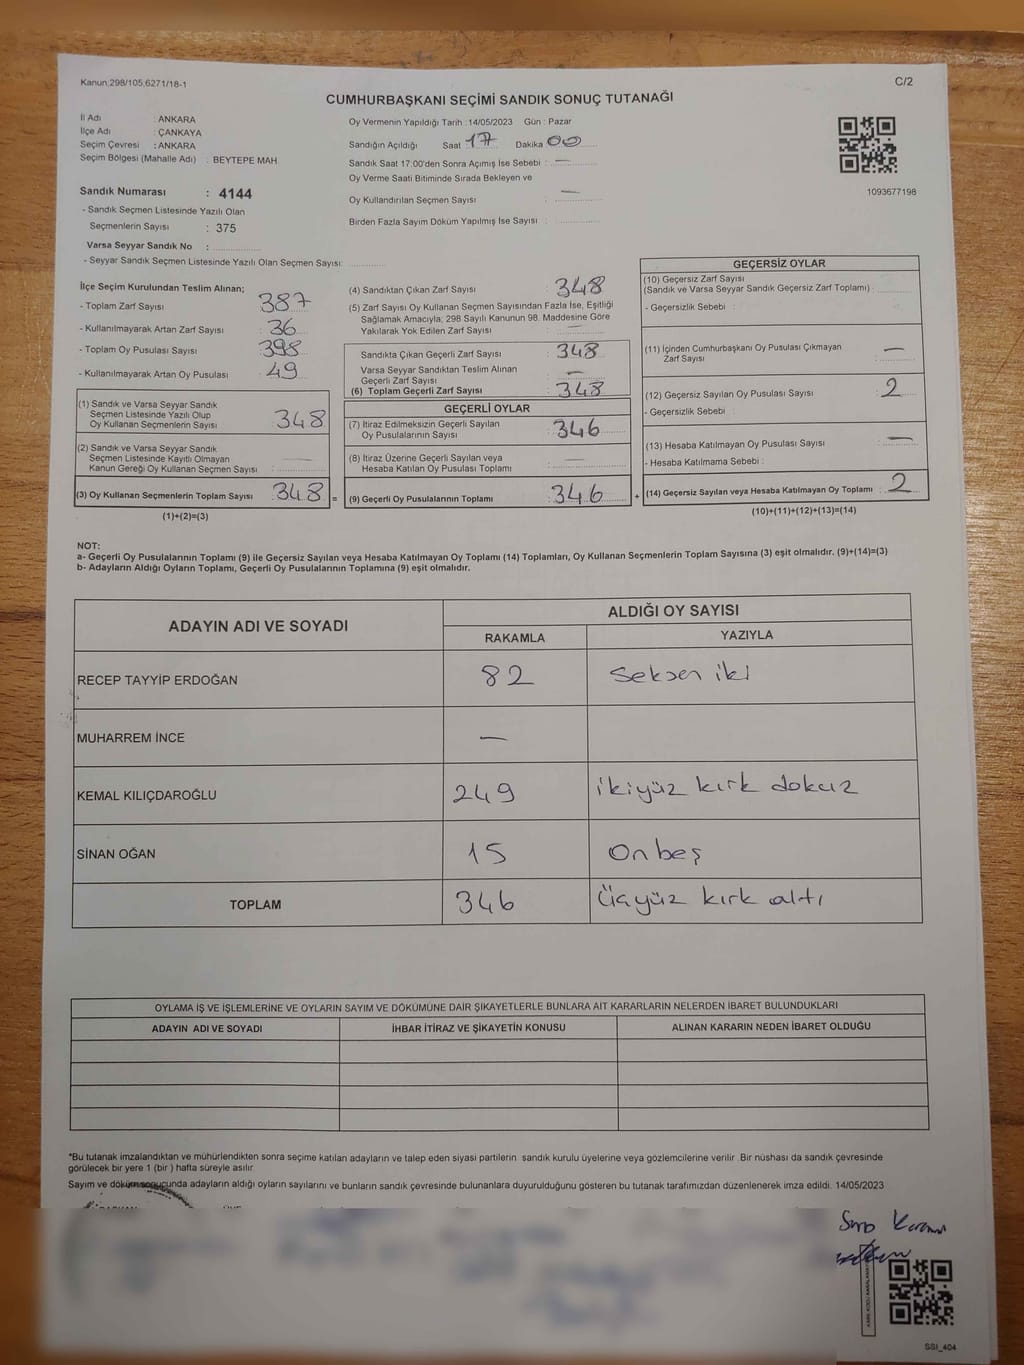 Kanun:298/105,6271/18-1
C/2
CUMHURBAŞKANI SEÇİMİ SANDIK SONUÇ TUTANAĞI
İl Adı : ANKARA
İlçe Adı : ÇANKAYA
Seçim Çevresi : ANKARA
Seçim Bölgesi (Mahalle Adı) : BEYTEPE MAH
Sandık Numarası : 4144
- Sandık Seçmen Listesinde Yazılı Olan
Seçmenlerin Sayısı : 375
Varsa Seyyar Sandık No :
- Seyyar Sandık Seçmen Listesinde Yazılı Olan Seçmen Sayısı:
Oy Vermenin Yapıldığı Tarih :14/05/2023 Gün : Pazar
Sandığın Açıldığı Saat 17 Dakika 00
Sandık Saat 17:00'den Sonra Açımış İse Sebebi : —
Oy Verme Saati Bitiminde Sırada Bekleyen ve
Oy Kullandırılan Seçmen Sayısı : —
Birden Fazla Sayım Döküm Yapılmış İse Sayısı :
1093677198
İlçe Seçim Kurulundan Teslim Alınan;
- Toplam Zarf Sayısı : 387
- Kullanılmayarak Artan Zarf Sayısı : 36
- Toplam Oy Pusulası Sayısı : 398
- Kullanılmayarak Artan Oy Pusulası : 49
(1) Sandık ve Varsa Seyyar Sandık
Seçmen Listesinde Yazılı Olup
Oy Kullanan Seçmenlerin Sayısı : 348
(2) Sandık ve Varsa Seyyar Sandık
Seçmen Listesinde Kayıtlı Olmayan
Kanun Gereği Oy Kullanan Seçmen Sayısı : —
(3) Oy Kullanan Seçmenlerin Toplam Sayısı : 348 =
(1)+(2)=(3)
(4) Sandıktan Çıkan Zarf Sayısı : 348
(5) Zarf Sayısı Oy Kullanan Seçmen Sayısından Fazla İse, Eşitliği
Sağlamak Amacıyla; 298 Sayılı Kanunun 98. Maddesine Göre
Yakılarak Yok Edilen Zarf Sayısı : —
Sandıkta Çıkan Geçerli Zarf Sayısı : 348
Varsa Seyyar Sandıktan Teslim Alınan
Geçerli Zarf Sayısı : —
(6) Toplam Geçerli Zarf Sayısı : 348
GEÇERLİ OYLAR
(7) İtiraz Edilmeksizin Geçerli Sayılan
Oy Pusulalarının Sayısı : 346
(8) İtiraz Üzerine Geçerli Sayılan veya
Hesaba Katılan Oy Pusulası Toplamı : —
(9) Geçerli Oy Pusulalarının Toplamı : 346 +
GEÇERSİZ OYLAR
(10) Geçersiz Zarf Sayısı
(Sandık ve Varsa Seyyar Sandık Geçersiz Zarf Toplamı) :
- Geçersizlik Sebebi :
(11) İçinden Cumhurbaşkanı Oy Pusulası Çıkmayan
Zarf Sayısı : —
(12) Geçersiz Sayılan Oy Pusulası Sayısı : 2
- Geçersizlik Sebebi :
(13) Hesaba Katılmayan Oy Pusulası Sayısı : —
- Hesaba Katılmama Sebebi :
(14) Geçersiz Sayılan veya Hesaba Katılmayan Oy Toplamı : 2
(10)+(11)+(12)+(13)=(14)
NOT:
a- Geçerli Oy Pusulalarının Toplamı (9) ile Geçersiz Sayılan veya Hesaba Katılmayan Oy Toplamı (14) Toplamları, Oy Kullanan Seçmenlerin Toplam Sayısına (3) eşit olmalıdır. (9)+(14)=(3)
b- Adayların Aldığı Oyların Toplamı, Geçerli Oy Pusulalarının Toplamına (9) eşit olmalıdır.
ADAYIN ADI VE SOYADI
ALDIĞI OY SAYISI
RAKAMLA YAZIYLA
RECEP TAYYİP ERDOĞAN 82 Seksen iki
MUHARREM İNCE —
KEMAL KILIÇDAROĞLU 249 ikiyüz kırk dokuz
SİNAN OĞAN 15 On beş
TOPLAM 346 Üçyüz kırk altı
OYLAMA İŞ VE İŞLEMLERİNE VE OYLARIN SAYIM VE DÖKÜMÜNE DAİR ŞİKAYETLERLE BUNLARA AİT KARARLARIN NELERDEN İBARET BULUNDUKLARI
ADAYIN ADI VE SOYADI İHBAR İTİRAZ VE ŞİKAYETİN KONUSU ALINAN KARARIN NEDEN İBARET OLDUĞU
*Bu tutanak imzalandıktan ve mühürlendikten sonra seçime katılan adayların ve talep eden siyasi partilerin sandık kurulu üyelerine veya gözlemcilerine verilir .Bir nüshası da sandık çevresinde
görülecek bir yere 1 (bir ) hafta süreyle asılır.
Sayım ve döküm sonucunda adayların aldığı oyların sayılarını ve bunların sandık çevresinde bulunanlara duyurulduğunu gösteren bu tutanak tarafımızdan düzenlenerek imza edildi. 14/05/2023
SSI_404